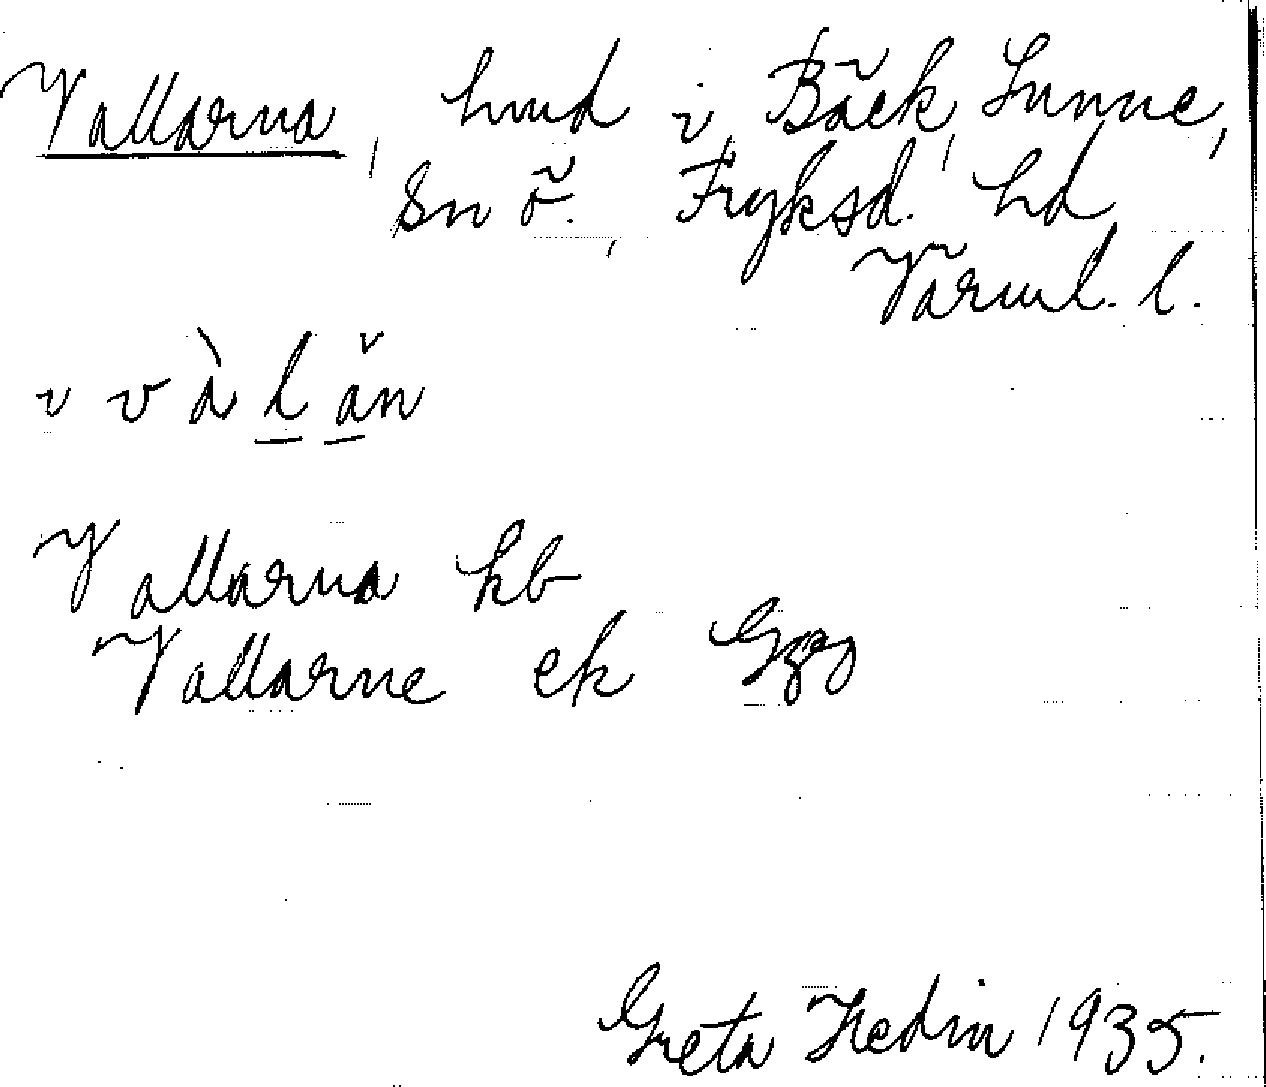 Vallarna, hmd i Bäck, Sunne,
Sn ö., Fryksd. hd
Värml. l.
i vàlǎn
Vallarna kb
Vallarne ek
Greta Hedin 1935.